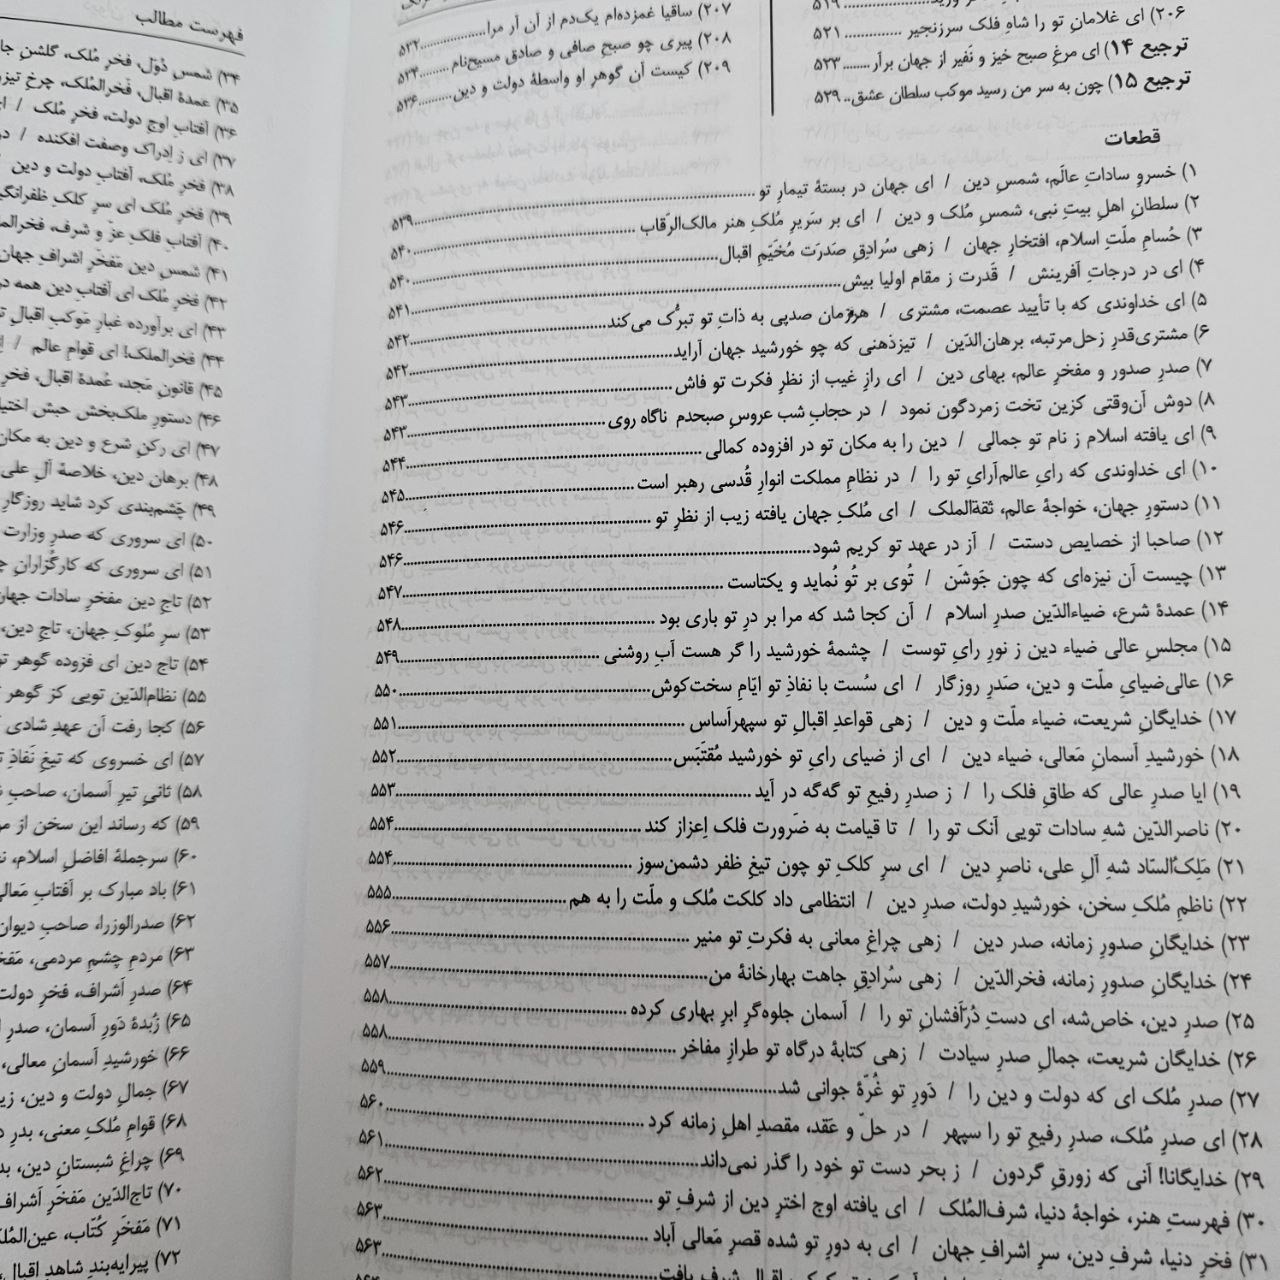 ۵۱۹
۲۰۶) ای غلامانِ تو را شاهِ فلک سرزنجیر .............. ۵۲۱
ترجیع ۱۴) ای مرغِ صبح خیز و نَفیر از جهان برآر........ ۵۲۳
ترجیع ۱۵) چون به سر من رسید موکب سلطان عشق.. ۵۲۹
۲۰۷) ساقیا غمزده‌ام یک‌دم از آن آر مرا..................۵۳۲
۲۰۸) پیری چو صبحِ صافی و صادق مسیح‌نام........ ۵۳۴
۲۰۹) کیست آن گوهرِ او واسطهٔ دولت و دین..........۵۳۶
قطعات
۱) خسروِ ساداتِ عالَم، شمسِ دین / ای جهان در بستهٔ تیمارِ تو ..........۵۳۹
۲) سلطانِ اهلِ بیتِ نبی، شمسِ مُلک و دین / ای بر سَریرِ مُلکِ هنر مالک‌الرّقاب ..........۵۴۰
۳) حُسامِ ملّتِ اسلام، افتخارِ جهان / زهی سُرادِقِ صَدرَت مُخَیَّمِ اقبال..........۵۴۰
۴) ای در درجاتِ آفرینش / قَدرت ز مقام اولیا بیش..........۵۴۱
۵) ای خداوندی که با تأیید عصمت، مشتری / هرزمان صدپی به ذاتِ تو تبرُّک می‌کند..........۵۴۲
۶) مشتری‌قدرِ زحل‌مرتبه، برهان‌الدّین / تیزذهنی که چو خورشید جهان آراید..........۵۴۲
۷) صدرِ صدور و مفخرِ عالم، بهای دین / ای رازِ غیب از نظرِ فکرت تو فاش..........۵۴۳
۸) دوش آن‌وقتی کزین تخت زمردگون نمود / در حجابِ شب عروسِ صبحدم ناگاه روی ..........۵۴۳
۹) ای یافته اسلام ز نام تو جمالی / دین را به مکان تو در افزوده کمالی ..........۵۴۴
۱۰) ای خداوندی که رایِ عالم‌آرایِ تو را / در نظامِ مملکت انوارِ قُدسی رهبر است..........۵۴۵
۱۱) دستورِ جهان، خواجهٔ عالم، ثقة‌الملک / ای مُلکِ جهان یافته زیب از نظرِ تو ..........۵۴۶
۱۲) صاحبا از خصایص دستت / آز در عهد تو کریم شود..........۵۴۶
۱۳) چیست آن نیزه‌ای که چون جَوشَن / تُوی بر تُو نُماید و یکتاست..........۵۴۷
۱۴) عمدهٔ شرع، ضیاءالدّین صدرِ اسلام / آن کجا شد که مرا بر درِ تو باری بود ..........۵۴۸
۱۵) مجلسِ عالی ضیاء دین ز نورِ رایِ توست / چشمهٔ خورشید را گر هست آبِ روشنی ..........۵۴۹
۱۶) عالی‌ضیایِ ملّت و دین، صَدرِ روزگار / ای سُست با نفاذِ تو ایّامِ سخت‌کوش..........۵۵۰
۱۷) خدایگانِ شریعت، ضیاء ملّت و دین / زهی قواعدِ اقبالِ تو سپهرآساس ..........۵۵۱
۱۸) خورشیدِ آسمانِ مَعالی، ضیاء دین / ای از ضیای رایِ تو خورشید مُقتَبَس..........۵۵۲
۱۹) ایا صدرِ عالی که طاقِ فلک را / ز صدرِ رفیعِ تو گه‌گه در آید ..........۵۵۳
۲۰) ناصرالدّین شهِ سادات تویی آنک تو را / تا قیامت به ضَرورت فلک اِعزاز کند ..........۵۵۴
۲۱) مَلِک‌السّاد شهِ آلِ علی، ناصرِ دین / ای سرِ کلکِ تو چون تیغِ ظفر دشمن‌سوز ..........۵۵۴
۲۲) ناظمِ مُلکِ سخن، خورشیدِ دولت، صدرِ دین / انتظامی داد کلکت مُلک و ملّت را به هم ..........۵۵۵
۲۳) خدایگانِ صدورِ زمانه، صدر دین / زهی چراغِ معانی به فکرتِ تو منیر ..........۵۵۶
۲۴) خدایگانِ صدورِ زمانه، فخرالدّین / زهی سُرادِقِ جاهت بهارخانهٔ من..........۵۵۷
۲۵) صدرِ دین، خاص‌شه، ای دستِ دُرّافشانِ تو را / آسمان جلوه‌گرِ ابرِ بهاری کرده ..........۵۵۸
۲۶) خدایگان شریعت، جمالِ صدرِ سیادت / زهی کتابهٔ درگاه تو طرازِ مفاخر ..........۵۵۸
۲۷) صدرِ مُلک ای که دولت و دین را / دَورِ تو غُرّهٔ جوانی شد..........۵۵۹
۲۸) ای صدرِ مُلک، صدرِ رفیعِ تو را سپهر / در حلّ و عَقد، مقصدِ اهلِ زمانه کرد ..........۵۶۰
۲۹) خدایگانا! آنی که زورقِ گردون / ز بحر دست تو خود را گذر نمی‌داند..........۵۶۱
۳۰) فهرستِ هنر، خواجهٔ دنیا، شرف‌المُلک / ای یافته اوج اخترِ دین از شرفِ تو ..........۵۶۲
۳۱) فخرِ دنیا، شرفِ دین، سرِ اشرافِ جهان / ای به دورِ تو شده قصرِ مَعالی آباد ..........۵۶۳
فهرست مطالب
۳۴) شمسِ دُوَل، فخرِ مُلک، گلشنِ
۳۵) عمدهٔ اقبال، فَخرالمُلک، چرخِ
۳۶) آفتابِ اوج دولت، فخرِ مُلک /
۳۷) ای ز اِدراک وصفت افکنده /
۳۸) فخرِ مُلک، آفتابِ دولت و دین
۳۹) فخرِ مُلک ای سرِ کلکِ
۴۰) آفتابِ فلکِ عزّ و شرف،
۴۱) شمسِ دین مَفخرِ اشرافِ جهان
۴۲) فخرِ مُلک ای آفتابِ دین همه
۴۳) ای برآورده غبارِ مَوکبِ اقبالِ
۴۴) فخرالملک! ای قوامِ عالم /
۴۵) قانونِ مَجد، عُمدهٔ اقبال،
۴۶) دستورِ ملک‌بخش حبش
۴۷) ای رکنِ شرع و دین به
۴۸) برهان دین، خلاصهٔ آلِ
۴۹) چَشم‌بندی کرد شاید روزگار
۵۰) ای سروری که صدرِ وزارت
۵۱) ای سروری که کارگُزارانِ
۵۲) تاجِ دین مفخرِ سادات
۵۳) سرِ مُلوکِ جهان، تاجِ دین،
۵۴) تاج دین ای فزوده گوهر
۵۵) نظام‌الدّین تویی کز گوهر
۵۶) کجا رفت آن عهدِ شادی
۵۷) ای خسروی که تیغِ نَفاذِ
۵۸) ثانیِ تیرِ آسمان، صاحبِ
۵۹) که رساند این سخن از
۶۰) سرجملهٔ افاضلِ اسلام،
۶۱) باد مبارک بر آفتابِ
۶۲) صدرالوزرا، صاحبِ
۶۳) مردمِ چشمِ مردمی،
۶۴) صدرِ اَشراف، فخرِ
۶۵) زُبدهٔ دَورِ آسمان، صدرِ
۶۶) خورشیدِ آسمانِ معالی،
۶۷) جمالِ دولت و دین،
۶۸) قوامِ مُلکِ معنی، بدرِ
۶۹) چراغِ شبستانِ دین،
۷۰) تاج‌الدّین مَفخَرِ
۷۱) مَفخَرِ کُتّاب،
۷۲) پیرایه‌بندِ شاهدِ